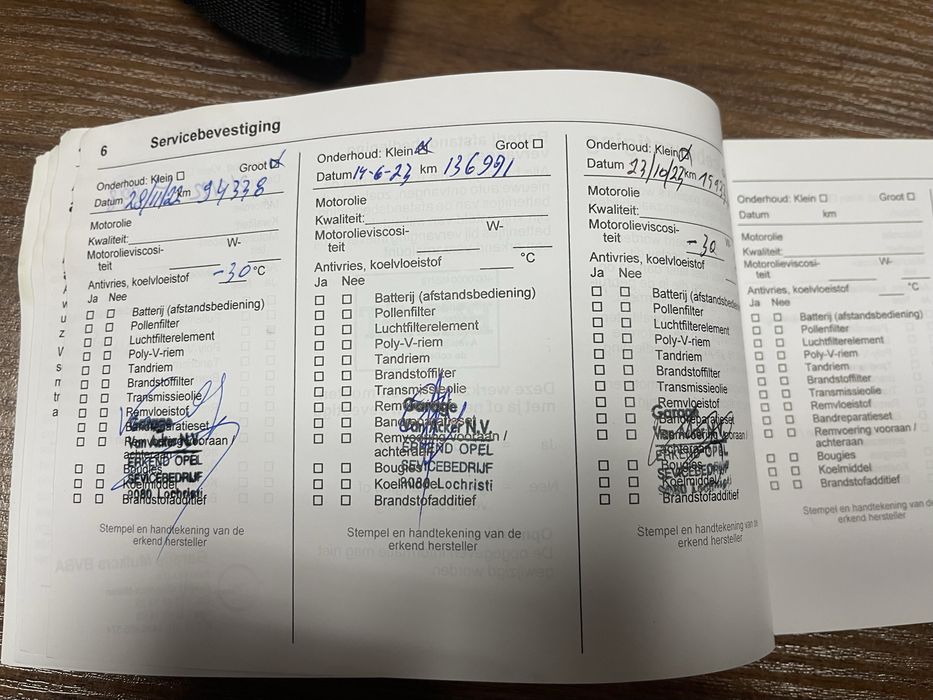 6 Servicebevestiging
Onderhoud: Klein Groot
Datum 28/11/22 km 94338
Motorolie
Kwaliteit:
Motorolieviscosi-
teit W-
Antivries, koelvloeistof -30 °C
Ja Nee
Batterij (afstandsbediening)
Pollenfilter
Luchtfilterelement
Poly-V-riem
Tandriem
Brandstoffilter
Transmissieolie
Remvloeistof
Bandreparatieset
Remvoering vooraan /
achteraan
Bougies
Koelmiddel
Brandstofadditief
ERKEND OPEL
SEVICEBEDRIJF
9080 Lochristi
Stempel en handtekening van de
erkend hersteller
Onderhoud: Klein Groot
Datum 14-6-23 km 136991
Motorolie
Kwaliteit:
Motorolieviscosi-
teit W-
Antivries, koelvloeistof °C
Ja Nee
Batterij (afstandsbediening)
Pollenfilter
Luchtfilterelement
Poly-V-riem
Tandriem
Brandstoffilter
Transmissieolie
Remvloeistof
Bandreparatieset
Remvoering vooraan /
achteraan
Bougies
Koelmiddel
Brandstofadditief
Garage
Van Acker N.V.
ERKEND OPEL
SEVICEBEDRIJF
9080 Lochristi
Stempel en handtekening van de
erkend hersteller
Onderhoud: Klein Groot
Datum km
Motorolie
Kwaliteit:
Motorolieviscosi-
teit -30 W-
Antivries, koelvloeistof
Ja Nee
Batterij (afstandsbediening)
Pollenfilter
Luchtfilterelement
Poly-V-riem
Tandriem
Brandstoffilter
Transmissieolie
Remvloeistof
Bandreparatieset
Remvoering vooraan /
achteraan
Bougies
Koelmiddel
Brandstofadditief
Garage
ERKEND OPEL
SEVICEBEDRIJF
9080 Lochristi
Stempel en handtekening van de
erkend hersteller
Onderhoud: Klein Groot
Datum km
Motorolie
Kwaliteit:
Motorolieviscosi-
teit W-
Antivries, koelvloeistof °C
Ja Nee
Batterij (afstandsbediening)
Pollenfilter
Luchtfilterelement
Poly-V-riem
Tandriem
Brandstoffilter
Transmissieolie
Remvloeistof
Bandreparatieset
Remvoering vooraan /
achteraan
Bougies
Koelmiddel
Brandstofadditief
Stempel en handtekening van de
erkend hersteller